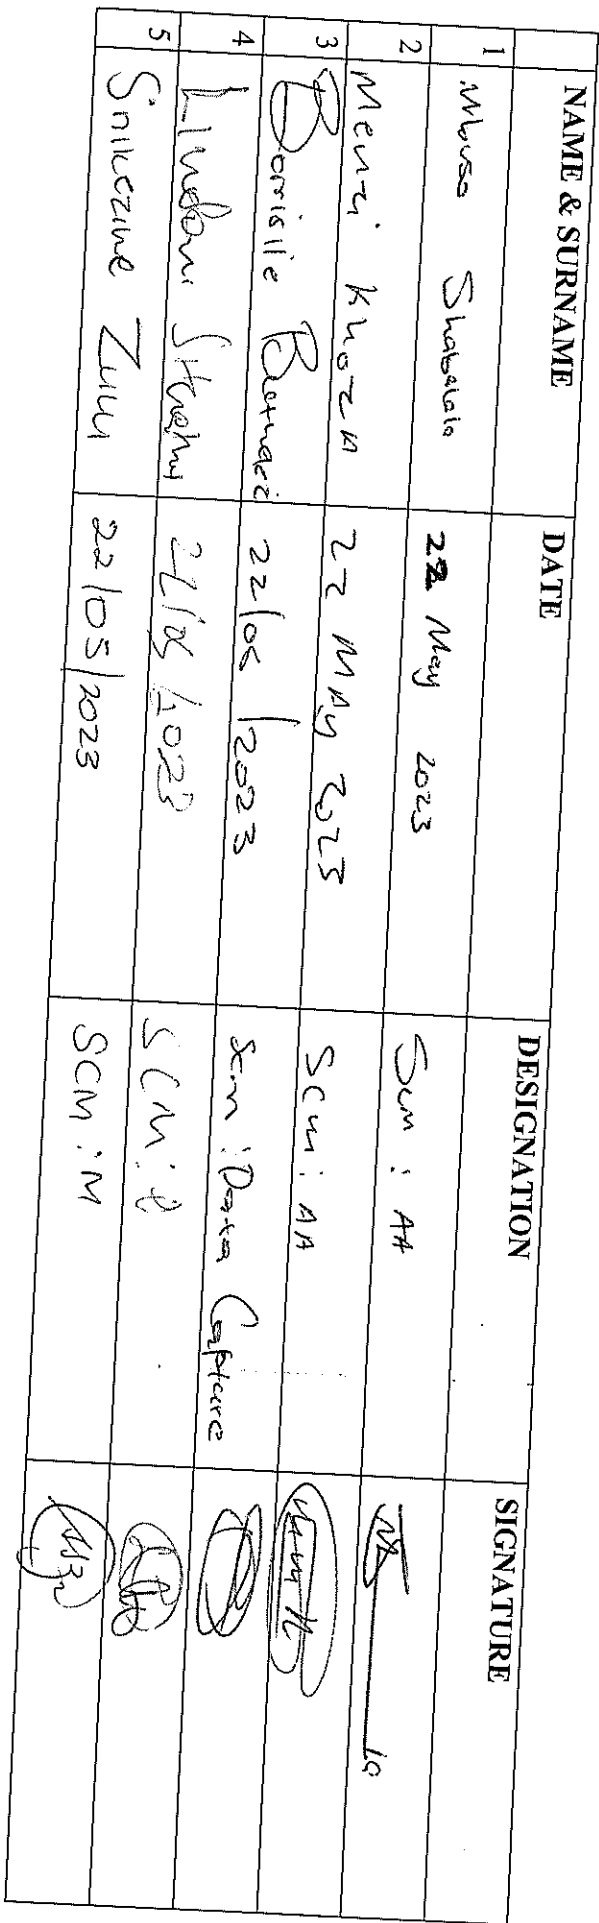 NAME & SURNAME DATE DESIGNATION SIGNATURE
1 Mbuso Shabalala 22 May 2023 SCM : AA
2 Menzi Khoza 22 MAY 2023 SCM : AA
3 22/05/2023 SCM : Data Capture
4 Lindani 22/05/2023 SCM :
5 Sinikeziwe Zulu 22/05/2023 SCM : M